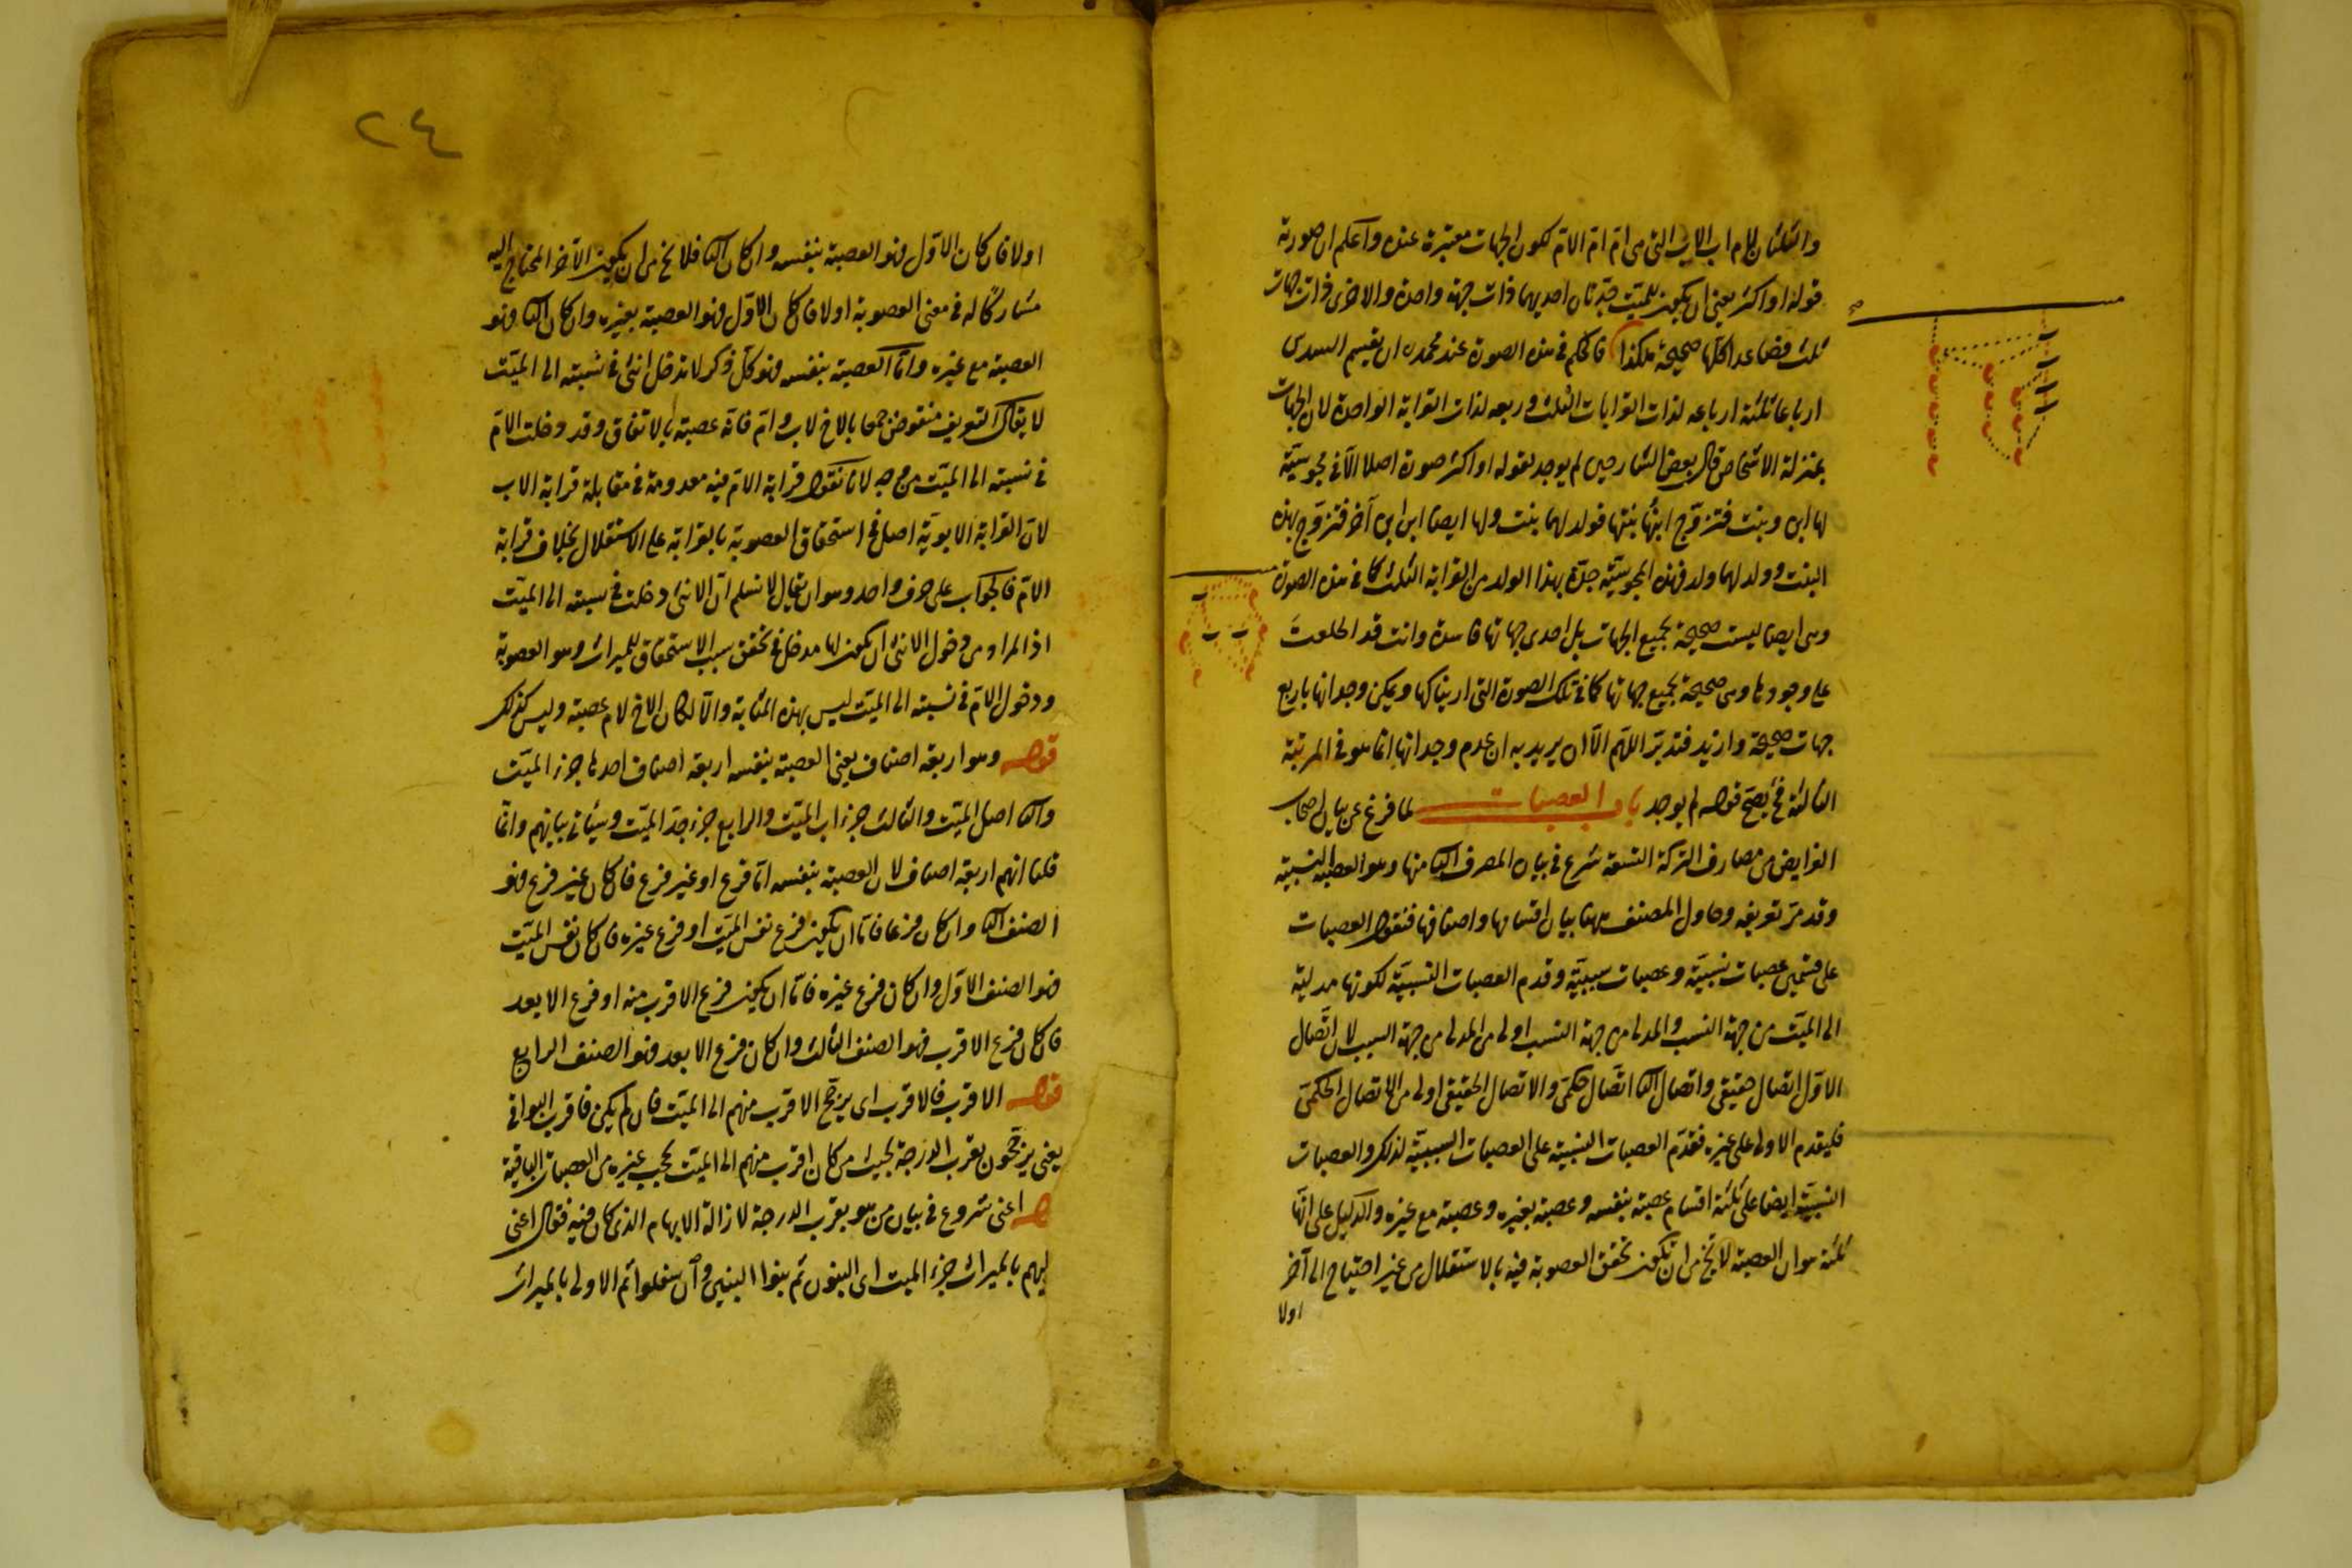 والثلثان لام اب الاب التى هى ام ام الام لكون الجهات معتبرة عنده واعلم ان صورة
قوله او اكثر يعنى ان يكون للميت جدتان احديهما ذات جهة واحدة والاخرى ذات جهات
ثلث فصاعدا كلها صحيحة هكذا فالحكم فى هذه الصورة عند محمد ره ان يقسم السدس
ارباعا ثلثة ارباعه لذات القرابات الثلث وربعه لذات القرابة الواحدة لان الجهات
بمنزلة الاشخاص قال بعض الشارحين لم يوجد لقوله او اكثر صورة اصلا الا فى مجوسية
لها ابن وبنت فتزوج ابنها بنتها فولد لهما بنت ولها ايضا ابن ابن آخر فتزوج بهذه
البنت وولد لهما ولد فهذه المجوسية جدة بهذا الولد من القرابة الثلث كما فى هذه الصورة
وهى ايضا ليست صحيحة بجميع الجهات بل احدى جهاتها فاسدة وانت قد اطلعت
على وجودها وهى صحيحة بجميع جهاتها كما فى تلك الصورة التى اريناكها ويمكن وجدانها باربع
جهات صحيحة وازيد فتدبر اللهم الا ان يريد به ان عدم وجدانها انما هو فى المرتبة
الثالثة فح يصح قوله لم يوجد باب العصبات لما فرغ عن بيان اصحاب
الفرايض من مصارف التركة التسعة شرع فى بيان المصرف الثانى منها وهو العصبة النسبية
وقد مر تعريفه وحاول المصنف ههنا بيان اقسامها واصنافها فنقول العصبات
على قسمين عصبات نسبية وعصبات سببية وقدم العصبات النسبية لكونها مدلية
الى الميت من جهة النسب والمدلى من جهة النسب اولى من المدلى من جهة السبب لان اتصال
الاول اتصال حقيقى واتصال الثانى اتصال حكمى والاتصال الحقيقى اولى من الاتصال الحكمى
فليقدم الاولى على غيره فقدم العصبات النسبية على العصبات السببية لذلك والعصبات
النسبية ايضا على ثلثة اقسام عصبة بنفسه وعصبة بغيره وعصبة مع غيره والدليل على انها
ثلثة هو ان العصبة لا يخ من ان يكون تحقق العصوبة فيه بالاستقلال من غير احتياج الى آخر
اولا
٢٤
اولا فان كان الاول فهو العصبة بنفسه وان كان الثانى فلا يخ من ان يكون الآخر المحتاج اليه
مشاركا له فى معنى العصوبة اولا فان كان الاول فهو العصبة بغيره وان كان الثانى فهو
العصبة مع غيره واما العصبة بنفسه فهو كل ذكر لا تدخل انثى فى نسبته الى الميت
لا يقال التعريف منقوض جمعا بالاخ لاب وام فانه عصبة بالاتفاق وقد دخلت الام
فى نسبته الى الميت من وجه لانا نقول قرابة الام فيه معدومة فى مقابلة قرابة الاب
لان القرابة الابوية اصل فى استحقاق العصوبة بالقرابة على الاستقلال بخلاف قرابة
الام فالجواب على حرف واحد وهو ان يقال لا نسلم ان الانثى دخلت فى نسبته الى الميت
اذ المراد من دخول الانثى ان يكون لها مدخل فى تحقق سبب الاستحقاق للميراث وهو العصوبة
ودخول الام فى نسبته الى الميت ليس بهذه المثابة والا لكان الاخ لام عصبة وليس كذلك
قوله وهو اربعة اصناف يعنى العصبة بنفسه اربعة اصناف احدها جزء الميت
والثانى اصل الميت والثالث جزء اب الميت والرابع جزء جد الميت وسيأتى بيانهم وانما
قلنا انهم اربعة اصناف لان العصبة بنفسه اما فرع او غير فرع فان كان غير فرع فهو
الصنف الثانى وان كان فرعا فاما ان يكون فرع نفس الميت او فرع غيره فان كان نفس الميت
فهو الصنف الاول وان كان فرع غيره فاما ان يكون فرع الاقرب منه او فرع الابعد
فان كان فرع الاقرب فهو الصنف الثالث وان كان فرع الابعد فهو الصنف الرابع
قوله الاقرب فالاقرب اى يرجح الاقرب منهم الى الميت فان لم يكن فاقرب البواقى
يعنى يرجحون بقرب الدرجة بحيث من كان اقرب منهم الى الميت يحجب غيره من العصبات الباقية
اعنى شروع فى بيان من هو بقرب الدرجة لازالة الابهام الذى كان فيه فقال اعنى
ليهم بالميراث جزء الميت اى البنون ثم بنوا البنين وان سفلوا ثم الاولى بالميراث